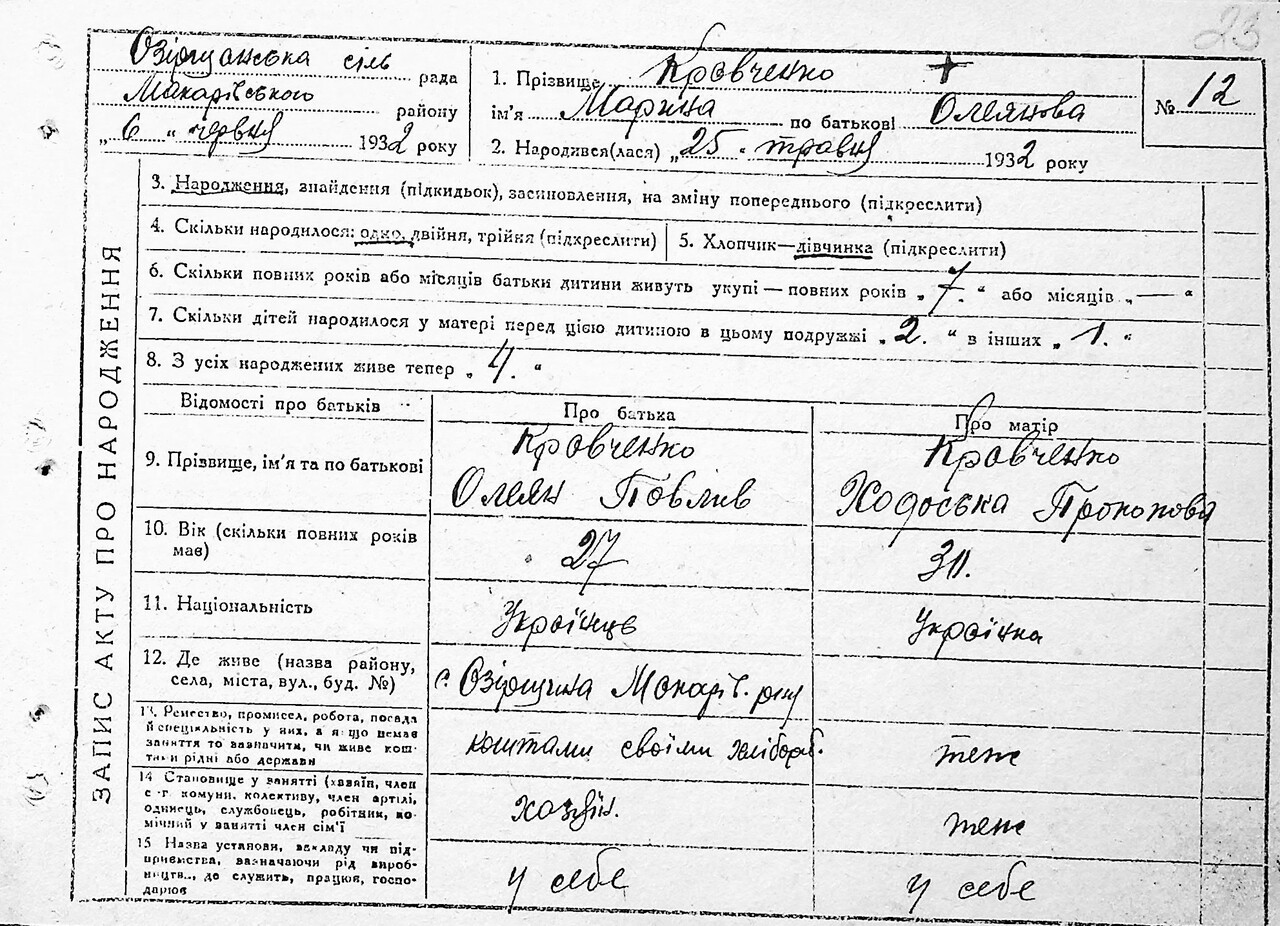 23
Озірщанська сіль рада
Макарівського району
„6 “ червня 1932 року
1. Прізвище Кравченко
ім'я Марина по батькові Олеянова
2. Народився(лася) „25 “ травня 1932 року
№ 12
ЗАПИС АКТУ ПРО НАРОДЖЕННЯ
3. Народження, знайдення (підкидьок), засиновлення, на зміну попереднього (підкреслити)
4. Скільки народилося: одно, двійня, трійня (підкреслити)
5. Хлопчик—дівчинка (підкреслити)
6. Скільки повних років або місяців батьки дитини живуть укупі — повних років „ 7. “ або місяців „ — “
7. Скільки дітей народилося у матері перед цією дитиною в цьому подружжі „ 2. “ в інших „ 1. “
8. З усіх народжених живе тепер „ 4. “
Відомості про батьків
Про батька
Про матір
9. Прізвище, ім'я та по батькові
Кравченко
Олеян Повлив
Кравченко
Ходоська Прокопова
10. Вік (скільки повних років має)
27
31.
11. Національність
Українць
Українка
12. Де живе (назва району,
села, міста, вул., буд. №)
с. Озірщина Макарів. рну
13. Ремество, промисел, робота, посада
й спеціяльність у них, а якщо немає
заняття то зазначити, чи живе кош-
тами рідні або держави
коштами своїми хлібороб.
теж
14 Становище у занятті (хазяїн, член
с.-г. комуни, колективу, член артілі,
одинець, службовець, робітник, по-
мічний у занятті член сім'ї
хазяїн.
теж
15 Назва установи, закладу чи під-
приємства, зазначаючи рід вироб-
ництв., де служить, працює, госпо-
дарює
у себе
у себе